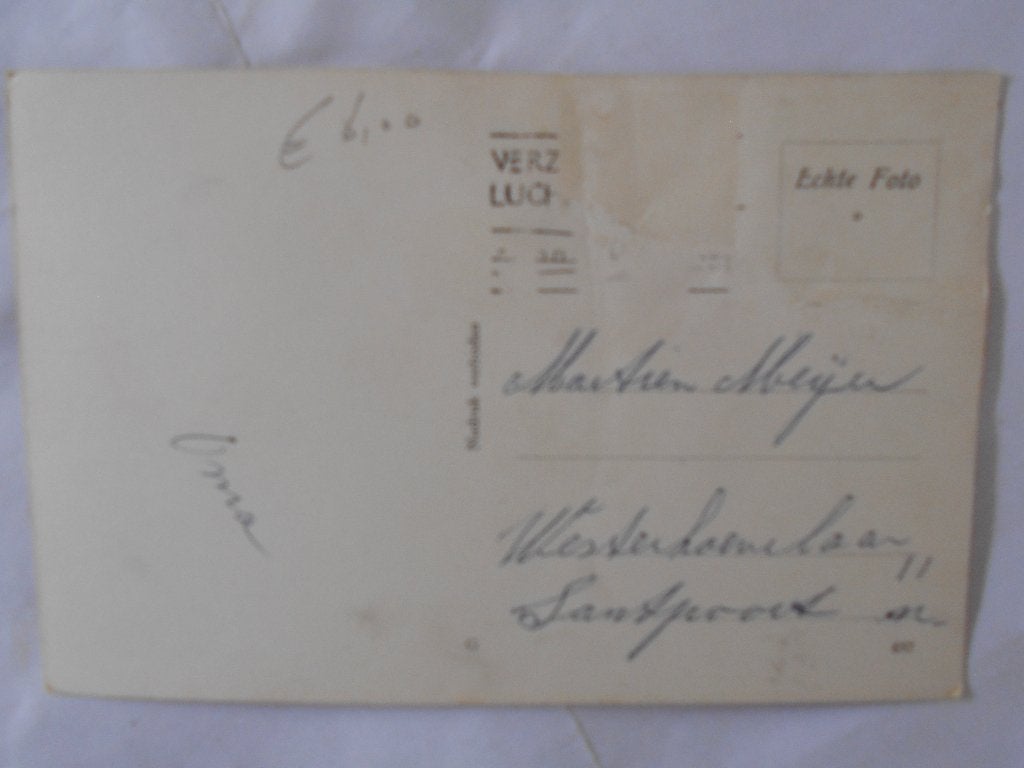 € 6,00
VERZ
LUCH
Echte Foto
Nadruk verboden
Martien Meijer
Oma
Westerhoevelaan
11
Santpoort n.